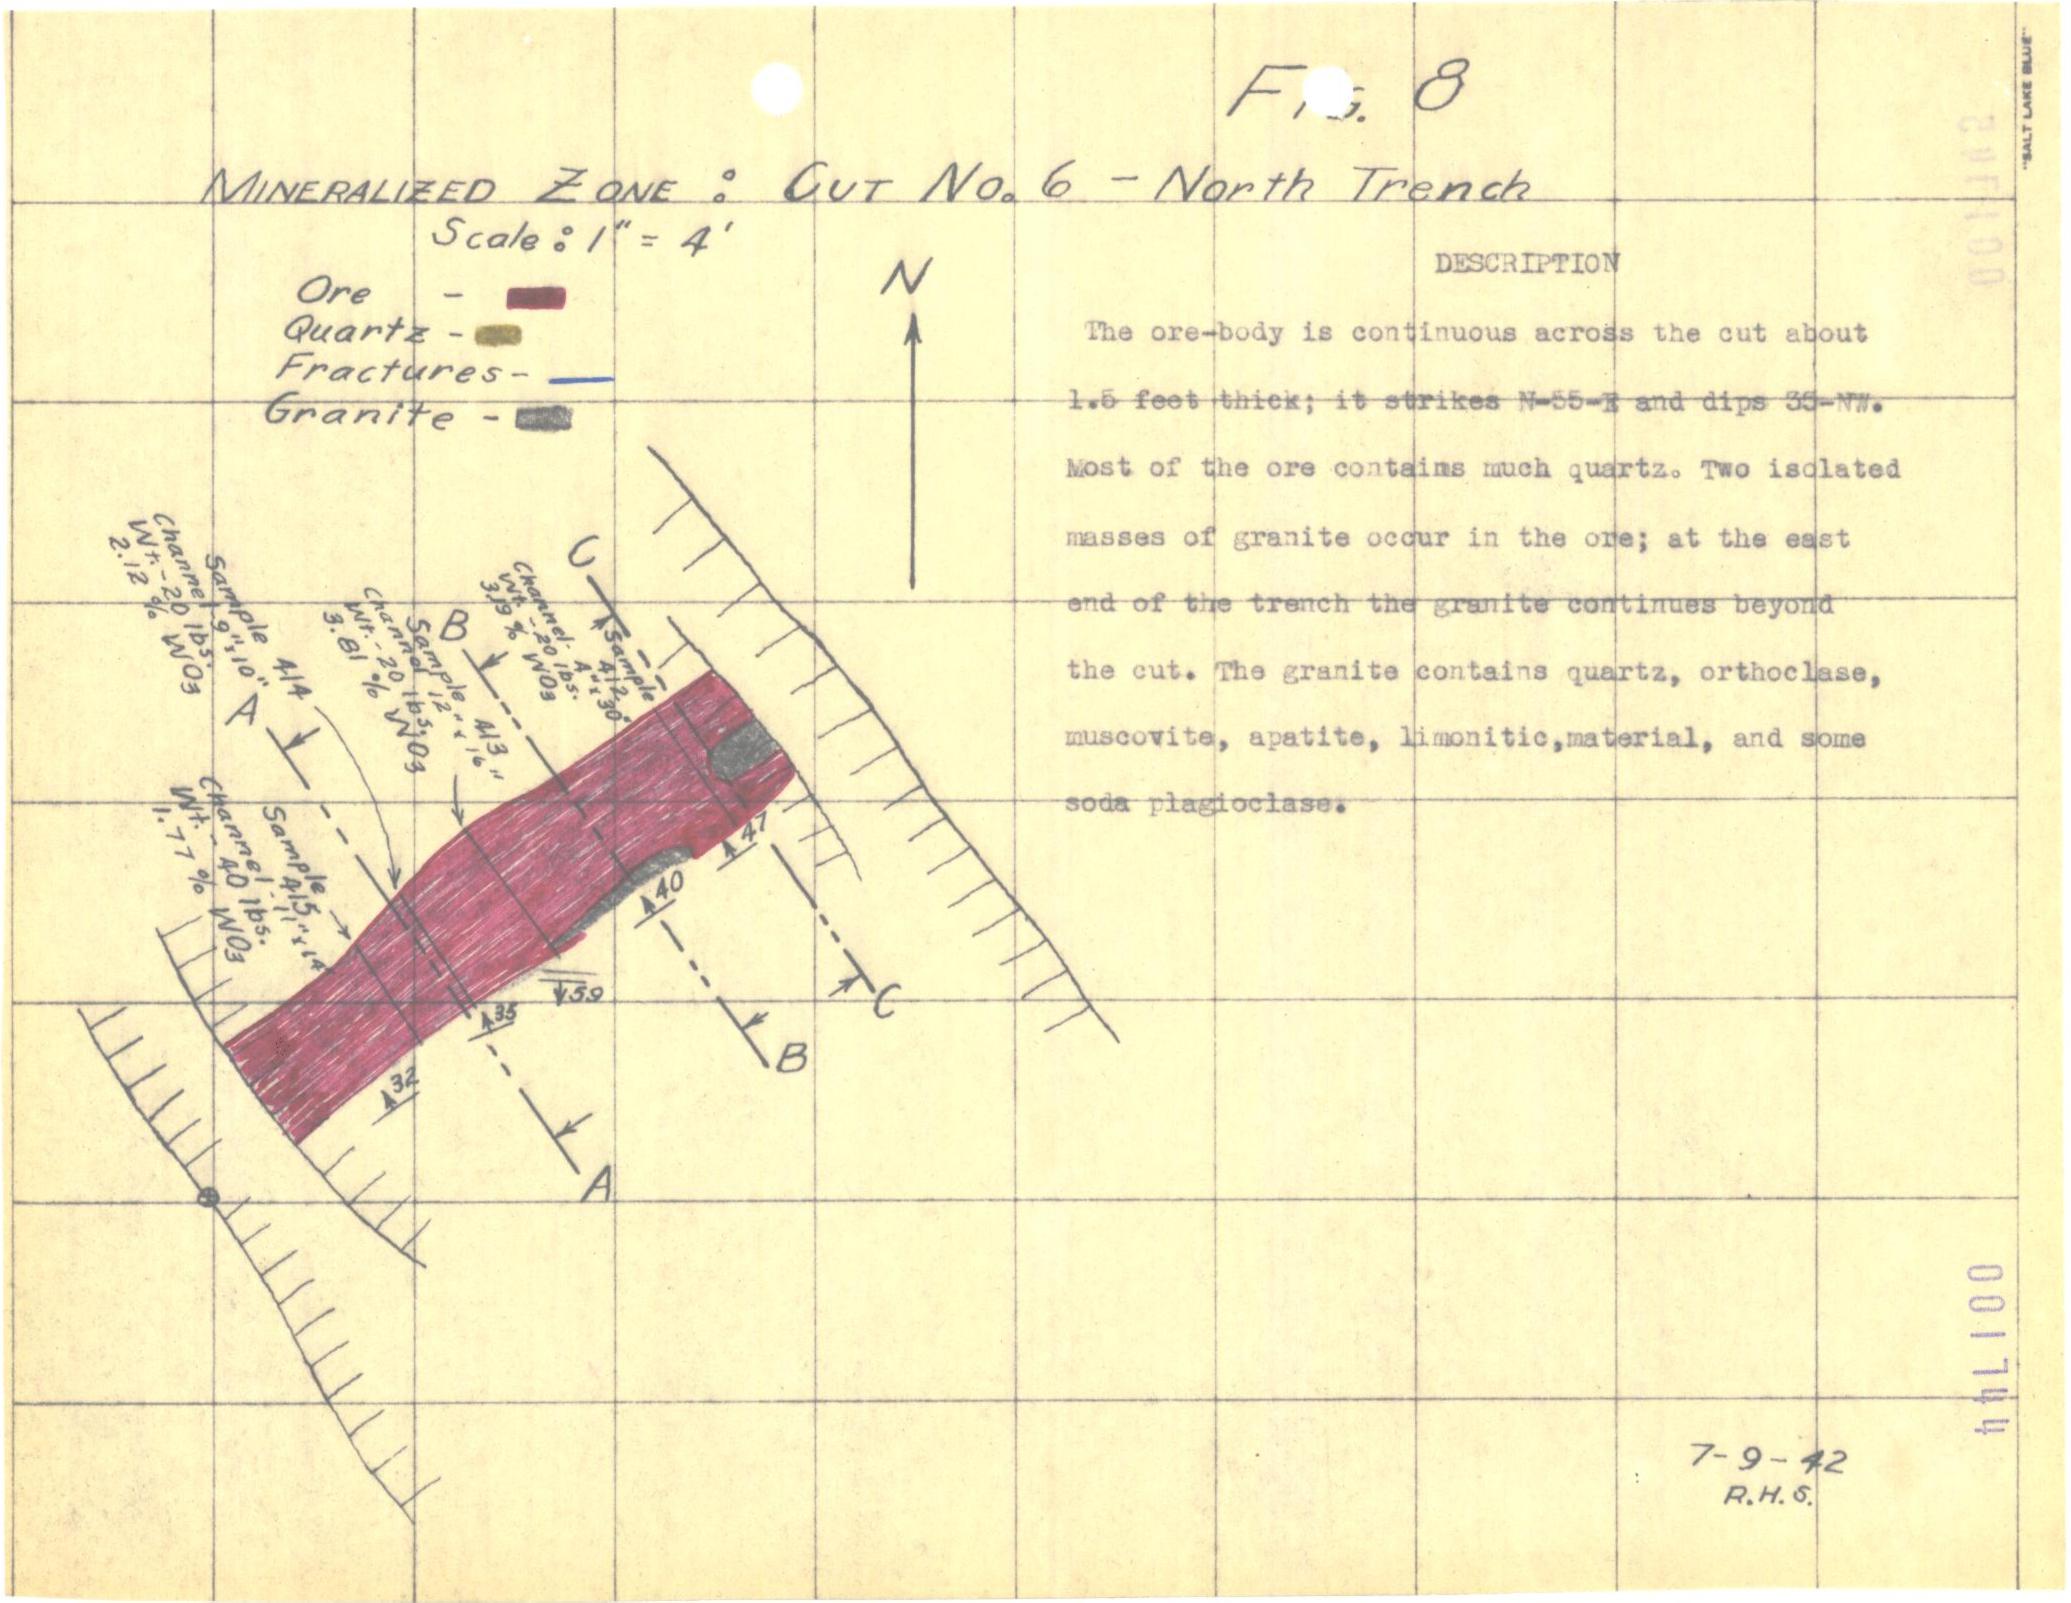 "SALT LAKE BLUE"
FIG. 8
MINERALIZED ZONE : CUT No. 6 - North Trench
Scale : 1" = 4'
Ore -
Quartz -
Fractures-
Granite -
N
DESCRIPTION
The ore-body is continuous across the cut about
1.5 feet thick; it strikes N-55-E and dips 35-NW.
Most of the ore contains much quartz. Two isolated
masses of granite occur in the ore; at the east
end of the trench the granite continues beyond
the cut. The granite contains quartz, orthoclase,
muscovite, apatite, limonitic,material, and some
soda plagioclase.
Sample 414
Channel 9"x10"
Wt.-20 lbs.
2.12 % WO3
Sample 413
Channel 12" x 16"
Wt.-20 lbs.
3.81 % WO3
Sample
412
Channel- 4"x30"
Wt.-20 lbs.
3.19 % WO3
Sample
415
Channel-11"x14"
Wt.-40 lbs.
1.77 % WO3
C
B
A
47
40
59
35
32
C
B
A
001744
7-9-42
R.H.S.